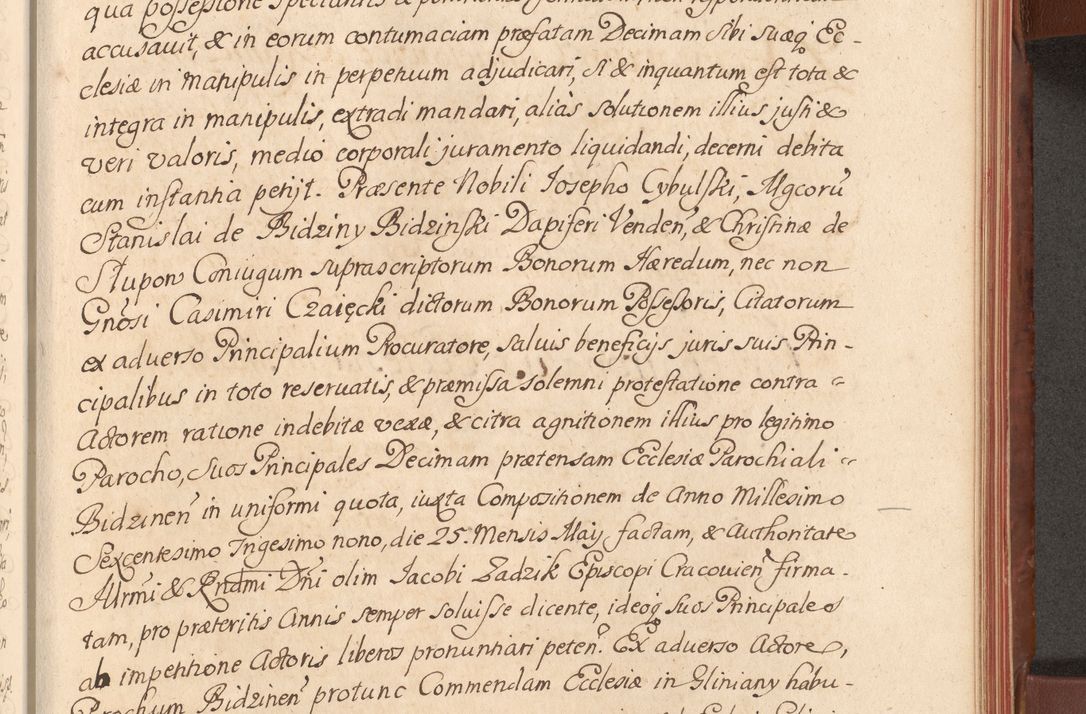 qua possessione
accusavit, & in eorum contumaciam præfatam Decimam sibi suæq Ec-
clesiæ in manipulis in perpetuum adjudicari, si & inquantum est tota &
integra in manipulis, extradi mandari, alias solutionem illius justi &
veri valoris, medio corporali juramento liquidandi, decerni debita
cum instantia petijt. Præsente Nobili Iosepho Cybulski, Mgcorũ
Stanislai de Bidziny Bidzinski Dapiferi Venden̄, & Christinæ de
Słupow Coniugum suprascriptorum Bonorum Hæredum, nec non
Gnosi Casimiri Czaięcki dictorum Bonorum Possessoris, Citatorum
ex adverso Principalium Procuratore, salvis beneficijs juris suis Prin-
cipalibus in toto reservatis, & præmissa solemni protestatione contra
Actorem ratione indebitæ vexæ, & citra agnitionem illius pro legitimo
Parocho, suos Principales Decimam prætensam Ecclesiæ Parochiali
Bidzinen̄ in uniformi quota, iuxta Compositionem de Anno Millesimo
Sexcentesimo Trigesimo nono, die 25. Mensis Maij factam, & Authoritate
Illrmi & Rndmi Dni olim Iacobi Zadzik Episcopi Cracovien̄ firma-
tam, pro præteritis Annis semper soluisse dicente, ideoq suos Principales
ab impetitione Actoris liberos pronuntiari peten̄. Ex adverso Actore,
Parochum Bidzinen̄ protunc Commendam Ecclesiæ in Gliniany habu-